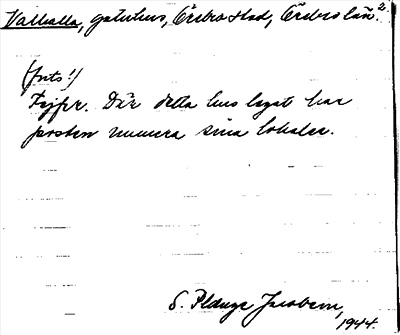 Valhalla, gatuhus, Örebro stad, Örebro län. 2.
(forts!)
Där detta hus legat har
posten numera sina lokaler.
S. Jacobson,
1944.